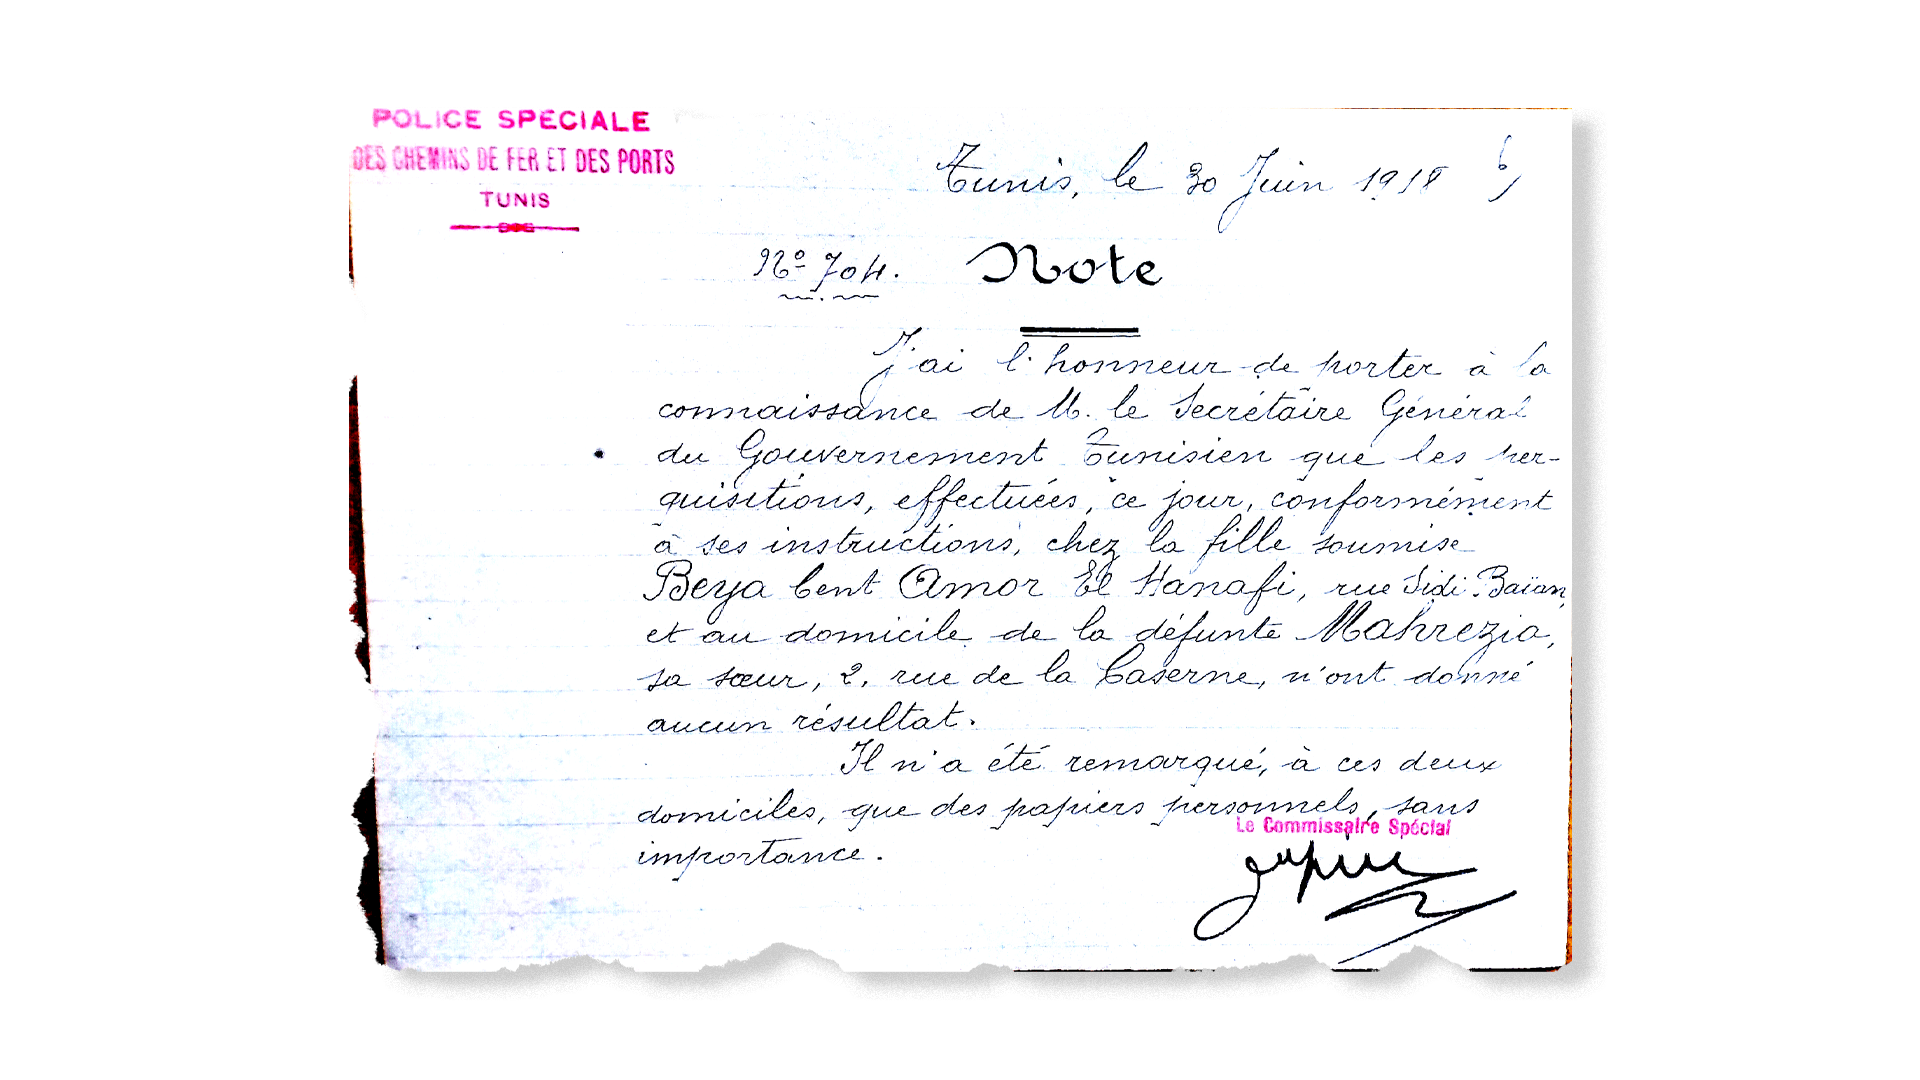 POLICE SPECIALE
DES CHEMINS DE FER ET DES PORTS
TUNIS
Tunis, le 30 Juin 1918
Nº 704.
Note
J'ai l'honneur de porter à la
connaissance de M. le Secrétaire Général
du Gouvernement Tunisien que les per-
quisitions, effectuées, ce jour, conformément
à ses instructions, chez la fille soumise
Beya bent Amor El Hanafi, rue Sidi Baïan,
et au domicile de la défunte Mahrezia,
sa sœur, 2, rue de la Caserne, n'ont donné
aucun résultat.
Il n'a été remarqué, à ces deux
domiciles, que des papiers personnels, sans
importance.
Le Commissaire Spécial